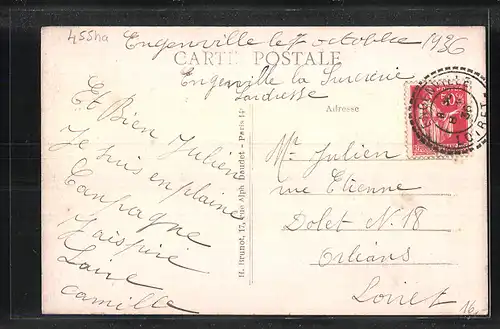 455na
Engenville le 7 octobre 1936
CARTE POSTALE
Engenville la Sucrerie
Adresse
Et Bien Julien
Je suis en plaine
Canpagne
Jaispire
Laire
Camille
H. Brunot, 17, rue Alph. Daudet - Paris 14e
Mr Julien
rue Etienne
Dolet N. 18
Orléans
Loiret
50c
LOIRET
16,